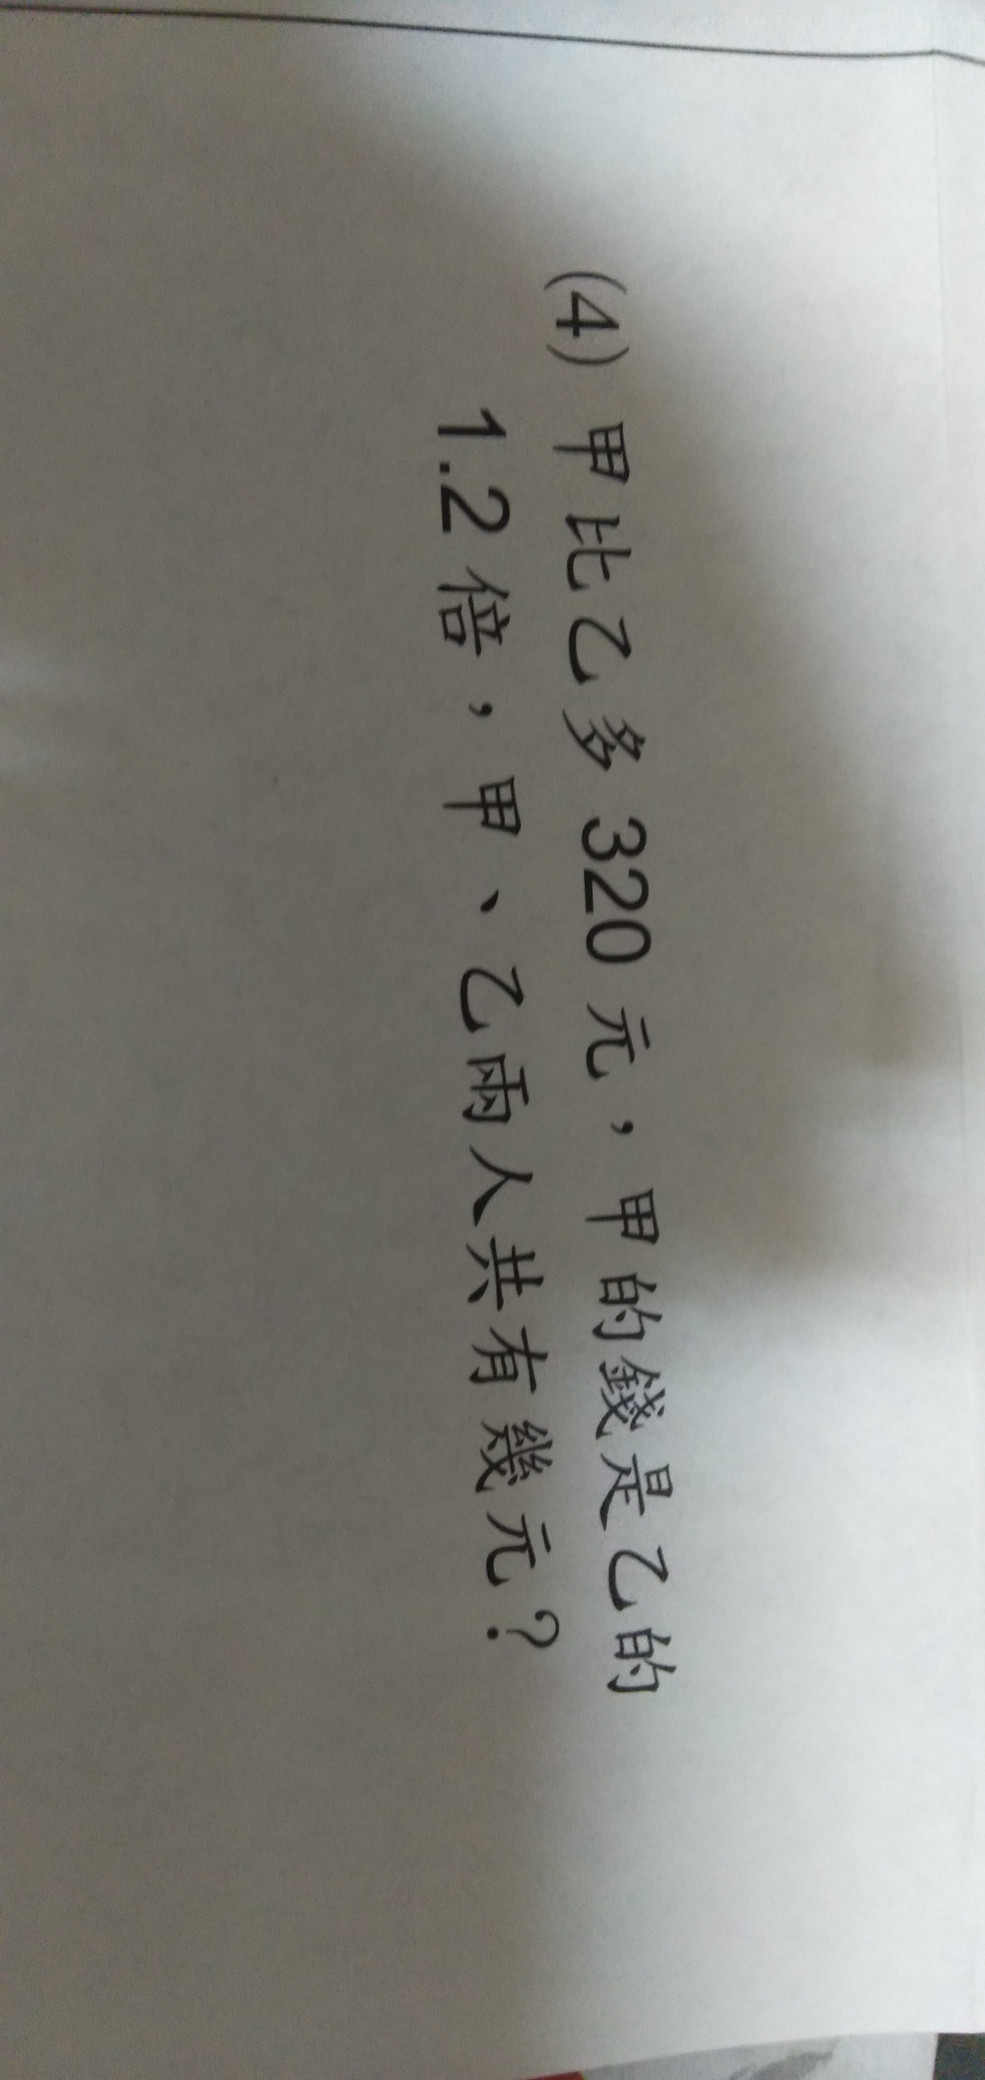 (4) 甲比乙多 320 元，甲的錢是乙的
1.2 倍，甲、乙兩人共有幾元？